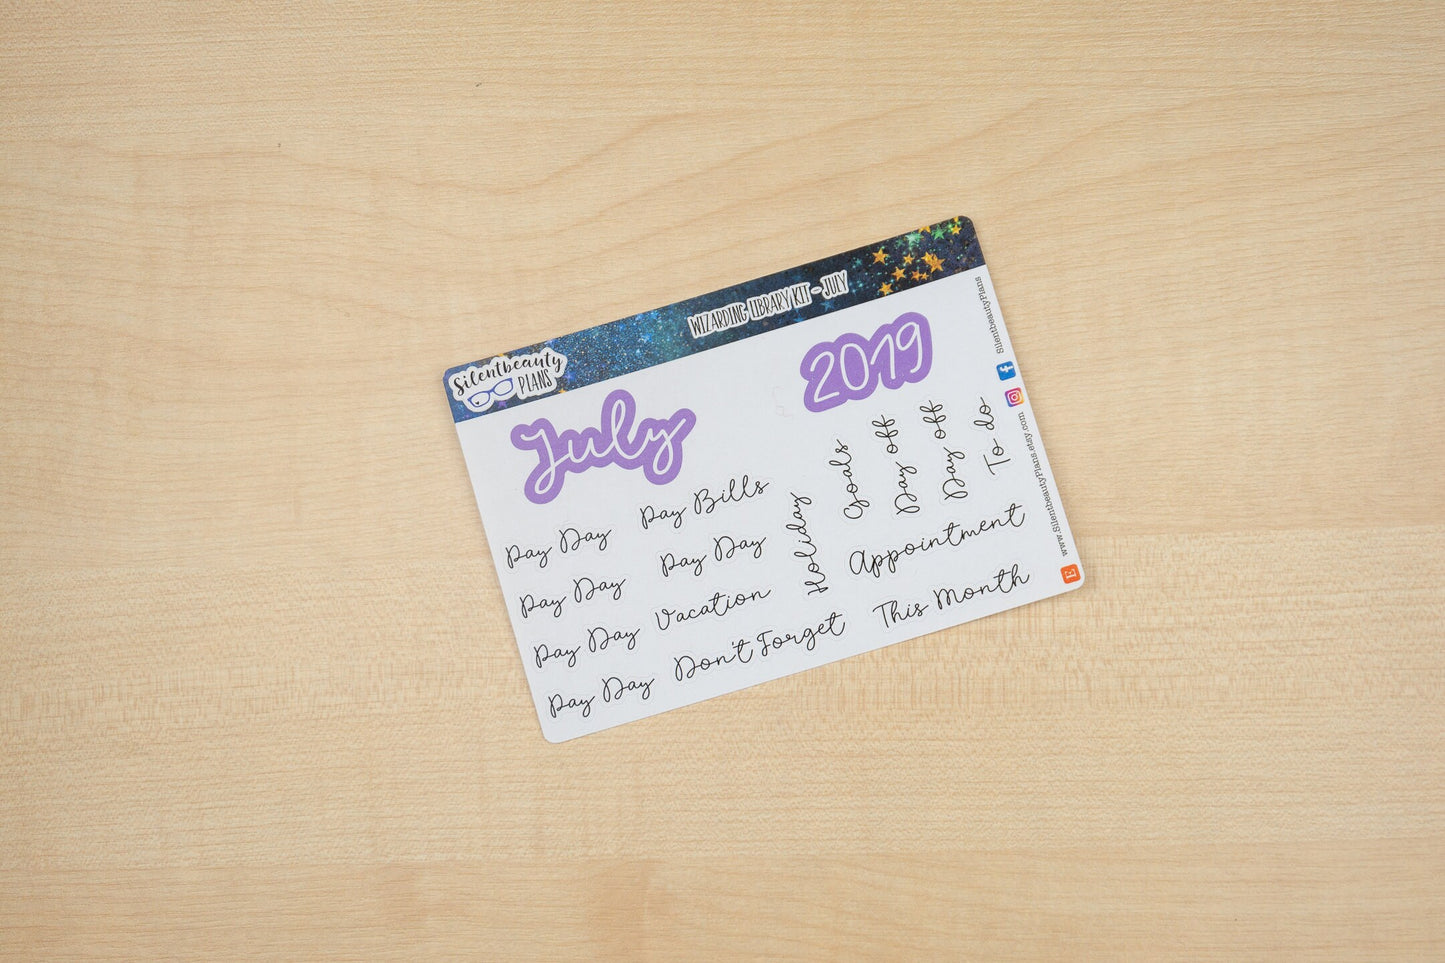 Silentbeauty
PLANS
WIZARDING LIBRARY KIT - JULY
July
2019
Pay Day
Pay Bills
Pay Day
Pay Day
Pay Day
Vacation
Pay Day
Don't Forget
Holiday
Goals
Day off
Day off
To do
Appointment
This Month
SilentbeautyPlans
f
www.SilentbeautyPlans.etsy.com
E